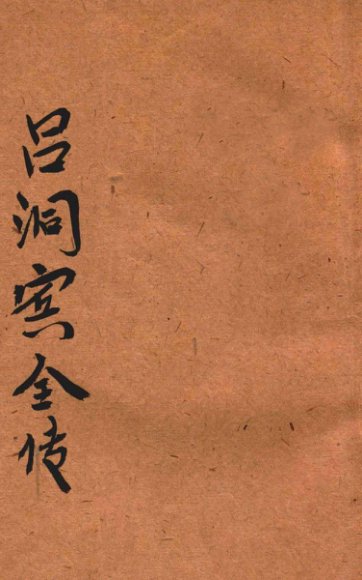 吕洞宾全传